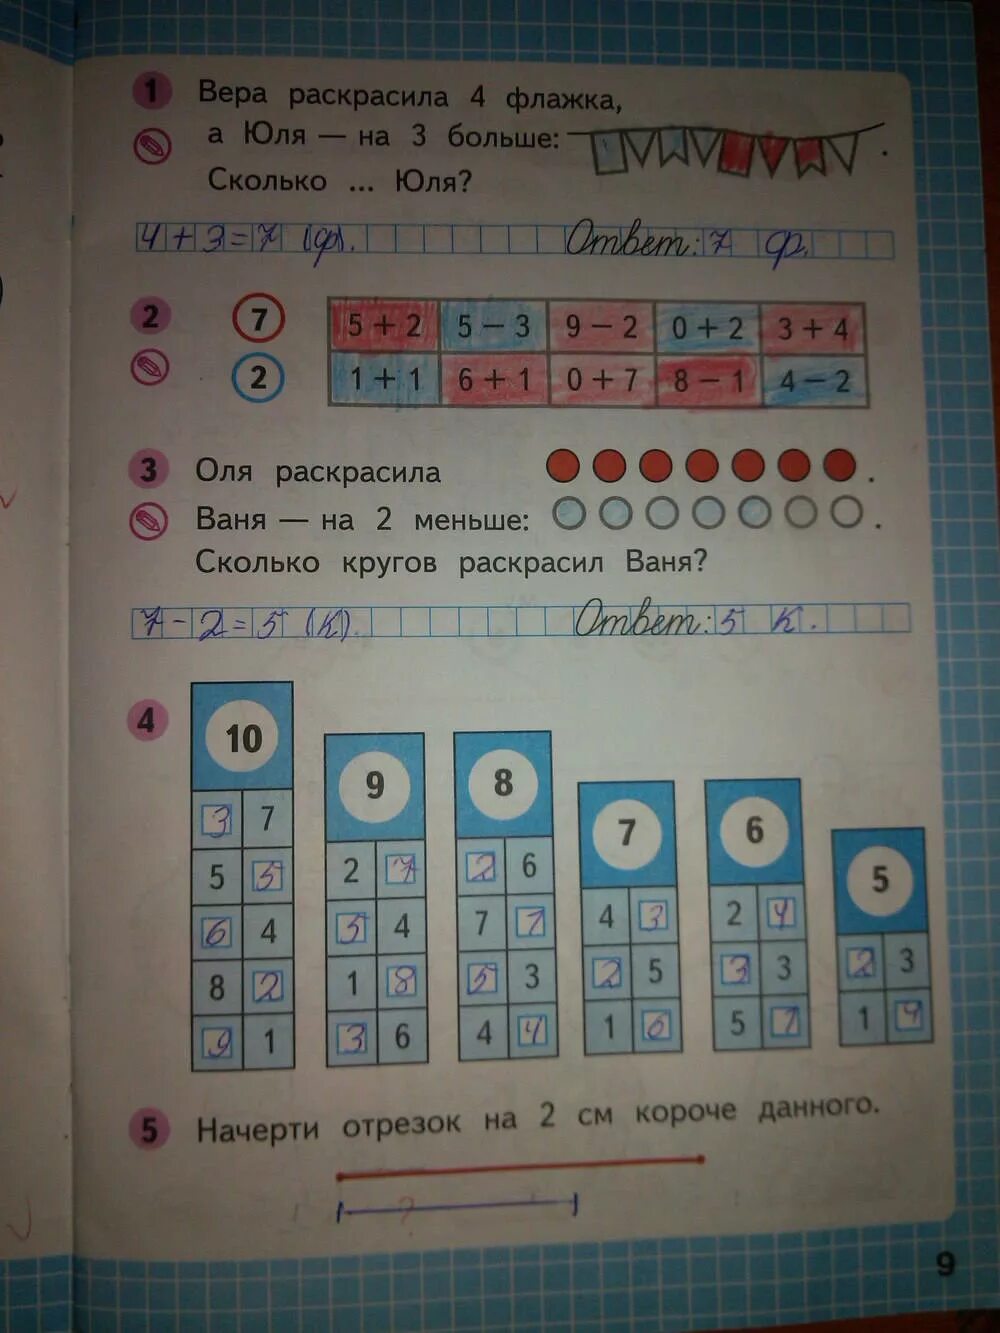 1 Вера раскрасила 4 флажка,
а Юля — на 3 больше: .
Сколько ... Юля?
4+3=7 (ф). Ответ: 7 ф.
2 7 5+2 5-3 9-2 0+2 3+4
2 1+1 6+1 0+7 8-1 4-2
3 Оля раскрасила .
Ваня — на 2 меньше: .
Сколько кругов раскрасил Ваня?
7-2=5 (к). Ответ: 5 к.
4
10
3 7
5 5
6 4
8 2
9 1
9
2 7
5 4
1 8
3 6
8
2 6
7 1
5 3
4 4
7
4 3
2 5
1 6
6
2 4
3 3
5 1
5
2 3
1 4
5 Начерти отрезок на 2 см короче данного.
?
9